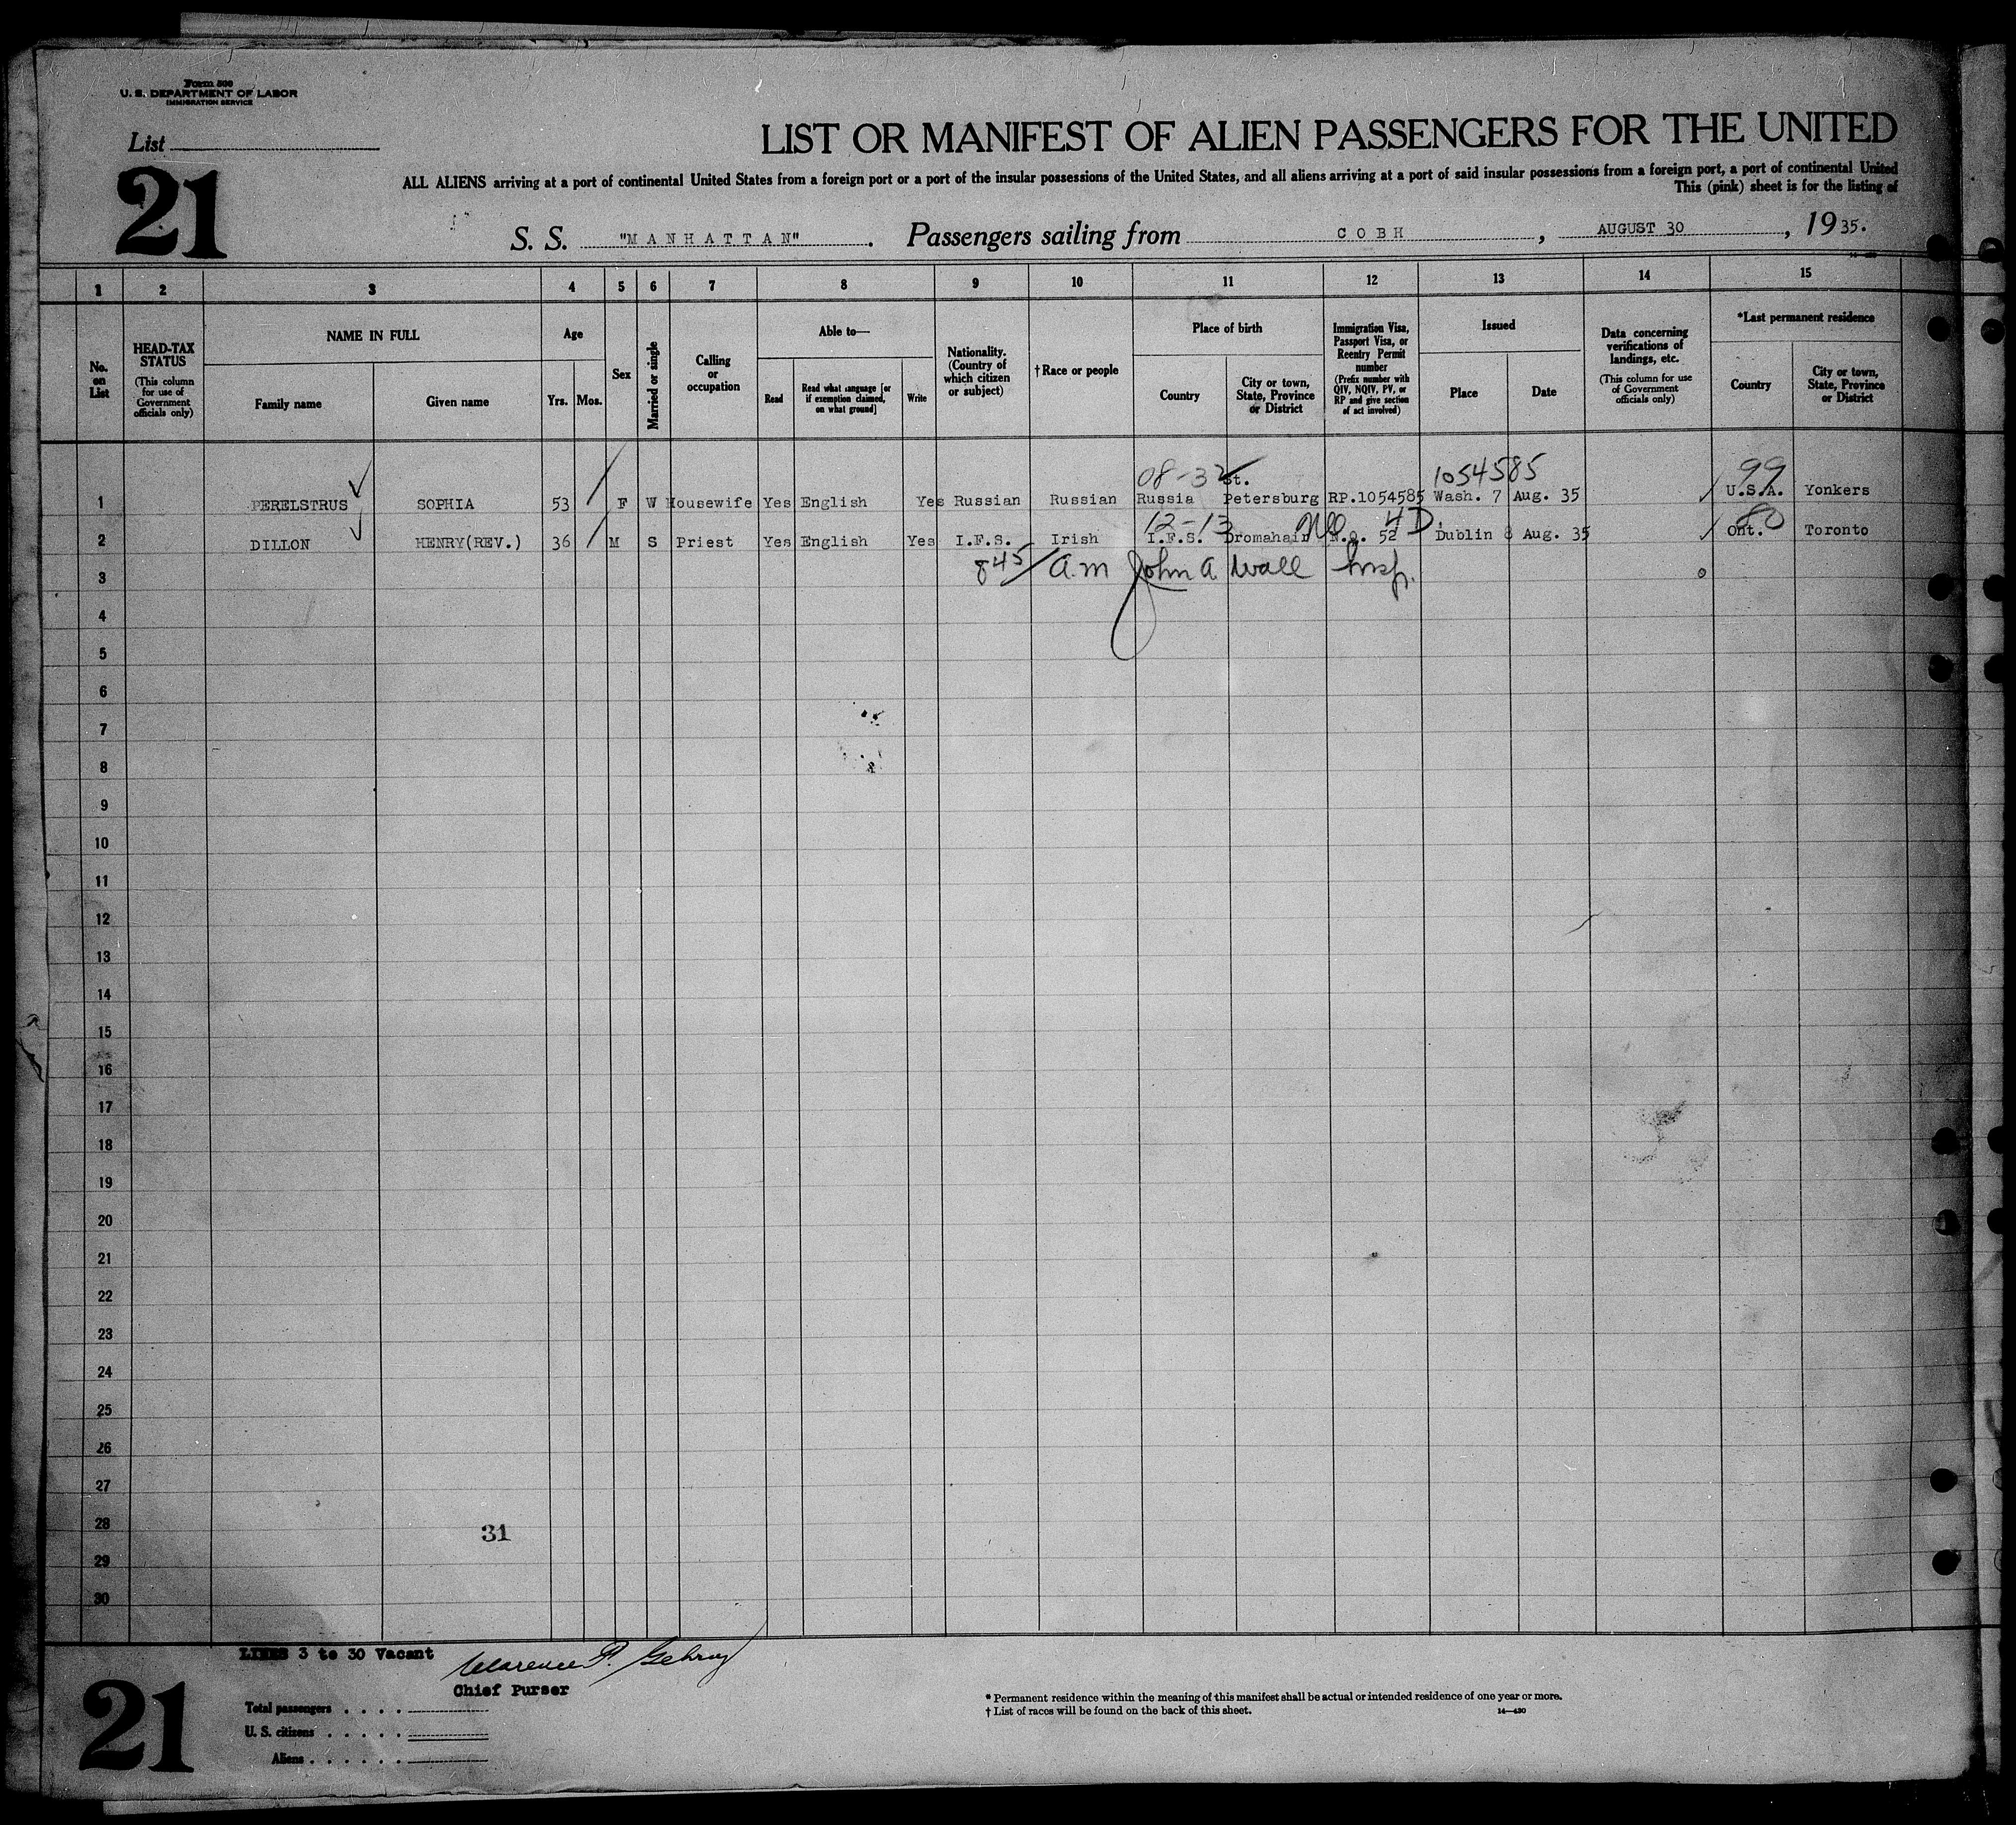 Form 500
U. S. DEPARTMENT OF LABOR
IMMIGRATION SERVICE
List
21
LIST OR MANIFEST OF ALIEN PASSENGERS FOR THE UNITED
ALL ALIENS arriving at a port of continental United States from a foreign port or a port of the insular possessions of the United States, and all aliens arriving at a port of said insular possessions from a foreign port, a port of continental United
This (pink) sheet is for the listing of
S. S. "MANHATTAN". Passengers sailing from COBH, AUGUST 30, 1935.
1 2 3 4 5 6 7 8 9 10 11 12 13 14 15
No. on List
HEAD-TAX STATUS
(This column for use of Government officials only)
NAME IN FULL
Family name
Given name
Age
Yrs. Mos.
Sex
Married or single
Calling or occupation
Able to—
Read
Read what language [or if exemption claimed, on what ground]
Write
Nationality. (Country of which citizen or subject)
† Race or people
Place of birth
Country
City or town, State, Province or District
Immigration Visa, Passport Visa, or Reentry Permit number
(Prefix number with QIV, NQIV, PV, or RP and give section of act involved)
Issued
Place
Date
Data concerning verifications of landings, etc.
(This column for use of Government officials only)
*Last permanent residence
Country
City or town, State, Province or District
08-32 1054585 99
1 PERELSTRUS SOPHIA 53 F W Housewife Yes English Yes Russian Russian Russia St. Petersburg RP.1054585 Wash. 7 Aug. 35 U.S.A. Yonkers
12-13 4D. 80
2 DILLON HENRY(REV.) 36 M S Priest Yes English Yes I.F.S. Irish I.F.S. Dromahair 52 Dublin 8 Aug. 35 Ont. Toronto
3 845/ a.m John A. Wall Insp.
4
5
6
7
8
9
10
11
12
13
14
15
16
17
18
19
20
21
22
23
24
25
26
27
28 31
29
30
LINES 3 to 30 Vacant
Clarence P. Gehrig
Chief Purser
21
Total passengers
U. S. citizens
Aliens
* Permanent residence within the meaning of this manifest shall be actual or intended residence of one year or more.
† List of races will be found on the back of this sheet.
14—430